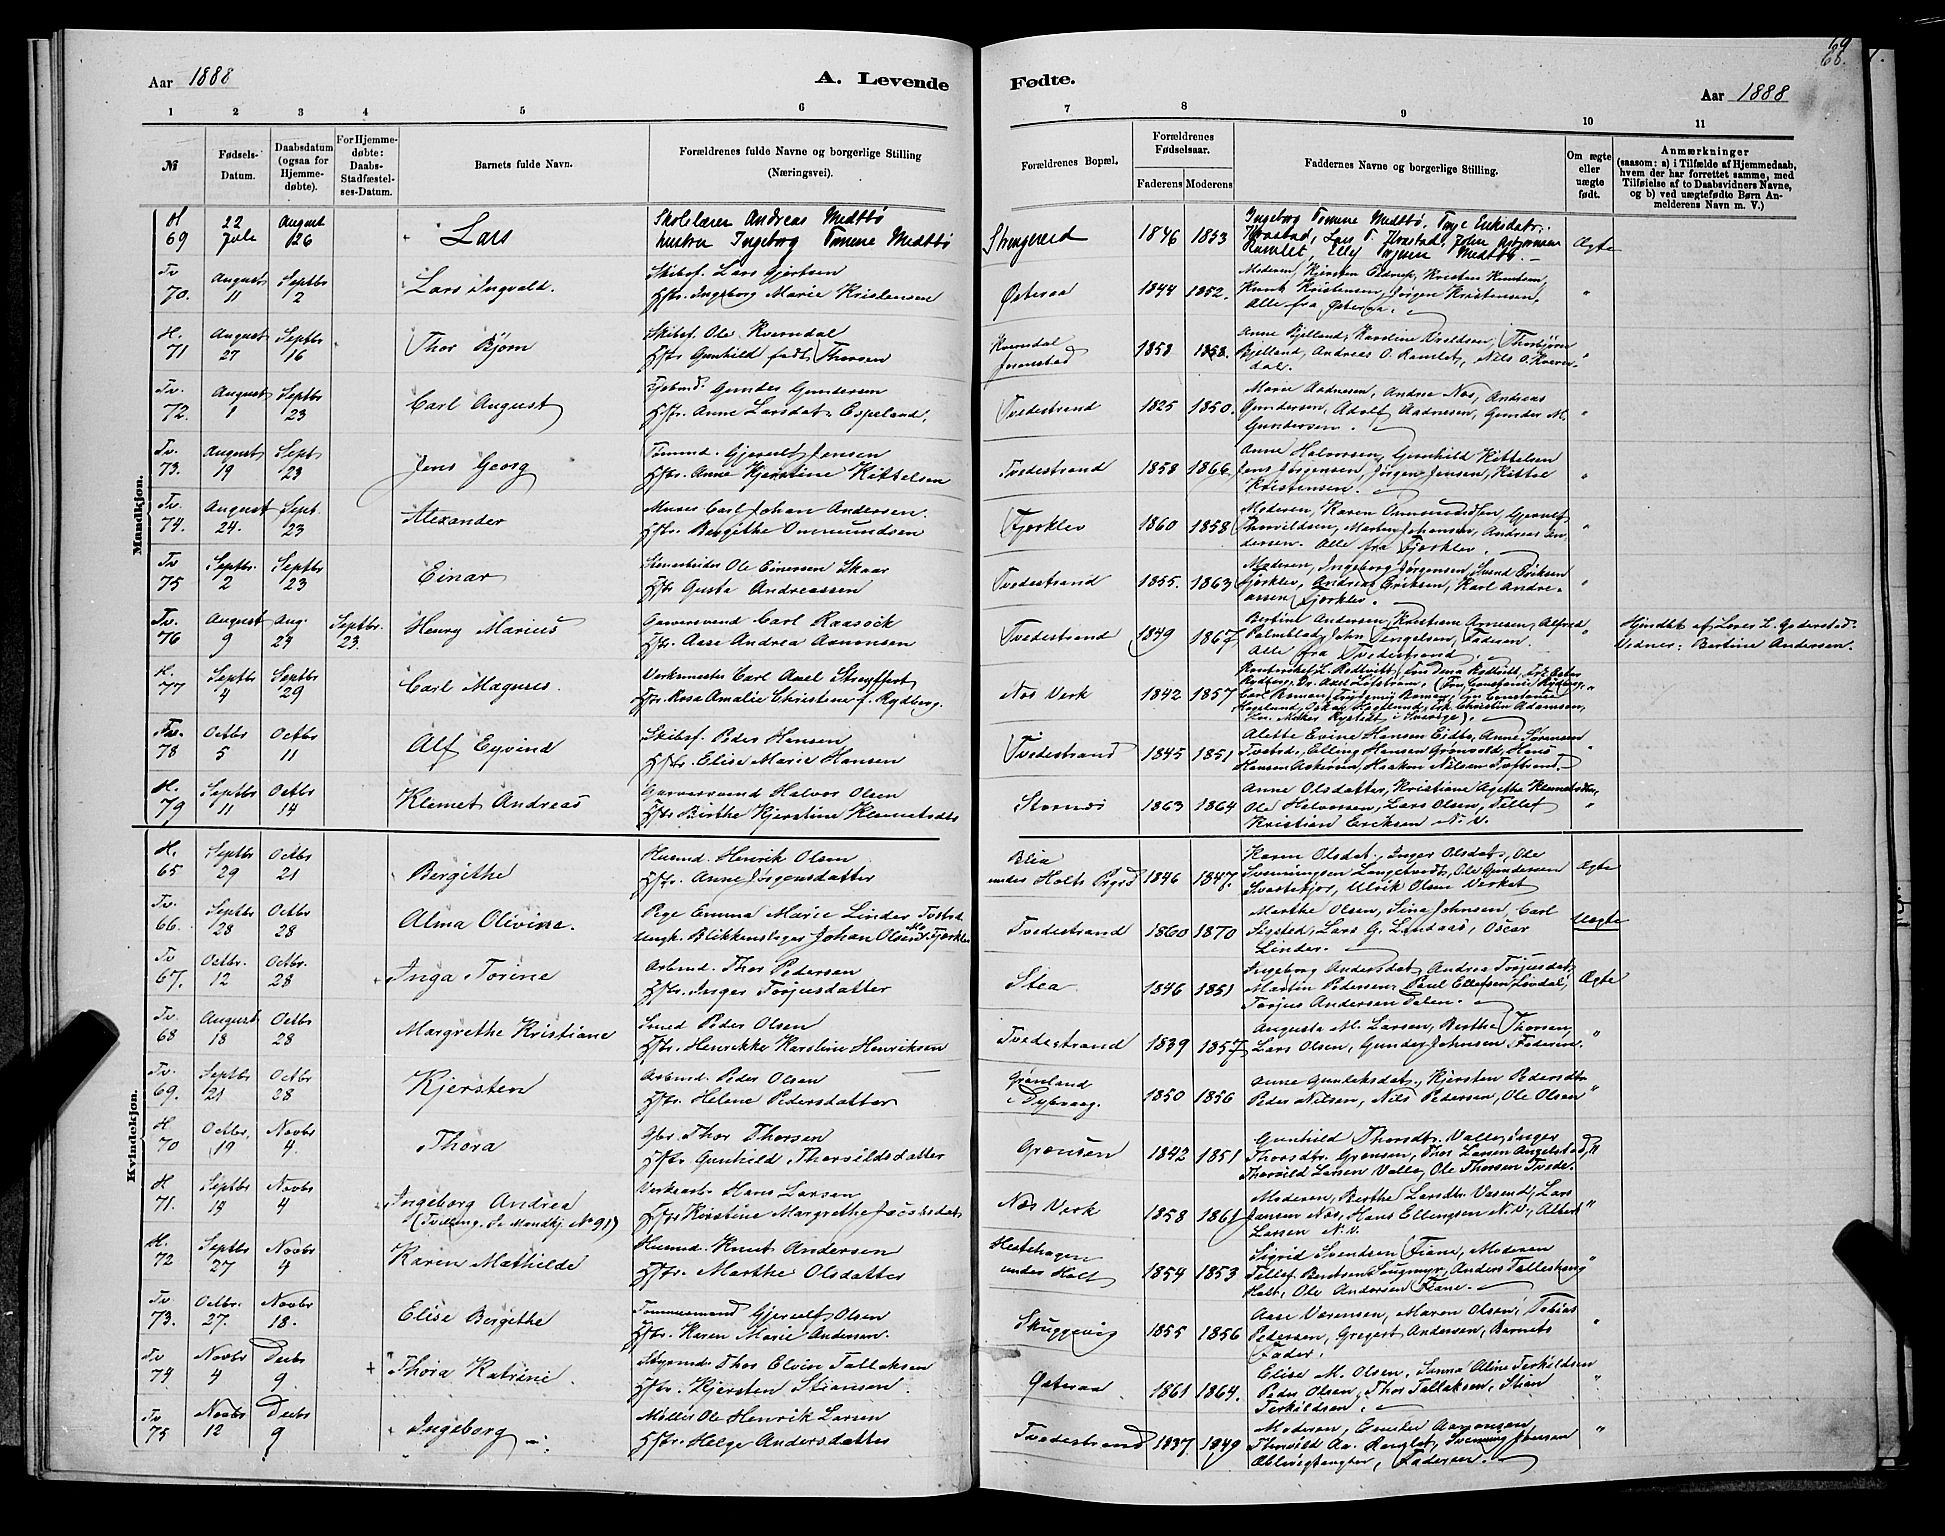 69
68.
Aar 1888
A. Levende
Fødte.
Aar 1888
1 2 3 4 5 6 7 8 9 10 11
№
Fødsels-Datum.
Daabsdatum (ogsaa for Hjemme-døbte).
For Hjemme-døbte: Daabs-Stadfæstel-ses-Datum.
Barnets fulde Navn.
Forældrenes fulde Navne og borgerlige Stilling (Næringsvei).
Forældrenes Bopæl.
Forældrenes Fødselsaar.
Faderens Moderens
Faddernes Navne og borgerlige Stilling.
Om ægte eller uægte født.
Anmærkninger (saasom: a) i Tilfælde af Hjemmedaab, hvem der har forrettet samme, med Tilføielse af to Daabsvidners Navne, og b) ved uægtefødte Børn Anmelderens Navn m. V.)
Mandkjøn.
H 69 22 Juli August 26 Lars Skolelærer Andreas Medtbø Hustru Ingeborg Tomine Medtbø 1846 1853 Ægte
Tv 70. August 11 Septbr 2 Lars Ingvald. Skibsf. Lars Gjertsen Hstr. Ingeborg Marie Kristensen Østeraa 1844 1852. Alle fra Østeraa. "
H. 71 August 27 Septbr 16 Thor Bjørn Skibsf. Ole Kverndal Hstr. Gunhild født Thorsen Kverndal 1858 1858. Bjelland, Andreas O. Ramlet, Nils O. Kverndal. "
Tv. 72. August 1 Septbr 23 Carl August Gunder Gundersen Hstr. Anne Larsdat. Espeland. Tvedestrand 1825 1850. Marie Aadnesen, Andrea Næs, Andreas Gundersen, Adolf Aadnesen, Gunder M. Gundersen. "
Tv. 73. August 19 Sept 23 Jens Georg Tømmd. Gjerulf Jensen Hstr. Anne Kjerstine Kittelsen Tvedestrand 1858 1866. Anne Halvorsen, Gunhild Kittelsen Jens Jørgensen, Jørgen Jensen, Kittel Kristensen. "
Tv. 74. August 24. Sept. 23 Alexander Murer Carl Johan Andersen. Hstr. Bergithe Ommundsen Fjerklev 1860 1858 Alle fra Fjerklev. "
Tv 75 Septbr. 2 Septbr 23 Einar Stenarbeider Ole Einersen Skaar Hstr. Gusta Andreassen Tvedestrand 1855. 1863 Moderen, Ingeborg Jørgensen, Svend Eriksen Fjerklev, Andreas Eriksen, Karl Andreassen Fjerklev. "
Tv. 76 August 9 Aug. 29 Septbr. 23. Henry Marius Garversvend Carl Raasock Hstr. Aase Andrea Aanonsen Tvedestrand 1849 1867 Bertine Andersen, Kristiane Arnesen, Alfred Palmblad, John Tengelsen, Faderen. Alle fra Tvedestrand. " Hjmdbt af Lærer L. Goderstad. Vidner: Bertine Andersen.
H. 77 Septbr 4 Septbr 29 Carl Magnus. Verksmester Carl Axel Hstr. Rosa Amalie Christene f. Rydberg. Næs Verk 1842 1857 "
Tv. 78 Octbr 5 Octbr 11 Alf Eyvind Skibsf. Peder Hansen Hstr. Elise Marie Hansen Tvedestrand 1845 1851 Alette Evine Hansen Eidbo, Anne Sørensen Tvstrd., Elling Hansen Grønvold, Hans Hansen Askerøen, Haakon Nilsen Tvstrand. "
H. 79 Septbr 11 Octbr 14 Klemet Andreas Garversvend Halvor Olsen Hstr Birthe Kjerstine Klemetsdatr 1863 1864 Anne Olsdatter, Kristiane Agethe Ole Halvorsen, Lars Olsen, Tellef Kristian Eriksen N. V. "
Kvindekjøn.
H. 65 Septbr 29 Octbr 21 Bergithe Husmd. Henrik Olsen Hstr. Anne Jørgensdatter Blia under Holts Prgrd 1846 1847. Karen Olsdat., Inger Olsdat., Ole Ole Gundersen Svartekjær, Ulrik Olsen Verket Ægte
Tv. 66. Septbr 28 Octbr 28 Alma Olivine. Pige Emma Marie Linder Tvstrd. Ungk. Blikkenslager Johan Olsen Fjerklev Tvedestrand 1860 1870 Marthe Olsen, Sina Johnsen, Carl Sigsted, Lars G. Landaas, Oscar Linder. Uægte
Tv 67. Octbr. 12 Octbr. 28 Inga Torine Arbmd. Thor Pedersen Hstr. Inger Torjusdatter Stea. 1846 1851 Ingeborg Andersdat, Andrea Torjusdat, Martin Pedersen, Poul Ellefsen Lindal, Torjus Andersen Dalen. Ægte
Tv. 68 August 18 Octbr 28 Margrethe Kristiane Smed Peder Olsen Hstr. Henrikke Karoline Henriksen Tvedestrand 1839 1857 Augusta M. Larsen, Berthe Thorsen, Lars Olsen, Gunder Johnsen, Faderen. "
Tv. 69. Septbr 21 Octbr 28 Kjersten Arbmd. Peder Olsen Hstr. Helene Pedersdatter Grønland i Dybvaag. 1850 1856 Anne Gunlaksdat., Kjersten Pedersdtr Peder Nilsen, Nils Pedersen, Ole Olsen "
H 70 Octbr. 19 Novbr 4. Thora Gbr. Thor Thorsen Hstr Gunhild Thorvildsdatter Grønsen 1842 1851 Gunhild Thorsdtr. Valle, Inger Thorsdtr. Grønsen, Thor Larsen Angelstad, Thorvild Larsen Valle, Ole Thorsen Tvede. "
H 71. Septbr 19 Novbr 4 Ingeborg Andrea (Tvilling. Se Mandkj. No 91) Verksarb. Hans Larsen Hstr Kirstine Margrethe Jacobsdatr Næs Verk 1858 1861 Moderen, Berthe Larsdtr. Vasend, Lars Jansen Næs, Hans Ellingsen N. V., Albert Larsen N. V. "
H. 72 Septbr 27 Novbr 4 Karen Mathilde Husmd. Knut Andersen Hstr. Marthe Olsdatter Hestehagen under Holt 1854 1853 Sigrid Svendsen Fiane, Moderen Tellef Berntsen Longmyr, Anders Holt, Ole Andersen Fiane. "
Tv 73. Octbr. 27. Novbr 18. Elise Bergithe Tømmermand Gjerulf Olsen Hstr. Karen Marie Andersen. Skuggevig 1855 1856 Maren Olsen, Tobias Pedersen, Gregert Andersen, Barnets Fader. "
Tv 74 Novbr 4 Decbr 9. Thora Katrine. Thor Elvin Tallaksen Hstr. Kjersten Stiansen Østeraa 1861 1864. Elise M. Olsen, Sanna Aline Terkildsen Peder Olsen, Thor Tallaksen, Stian Terkildsen. "
Tv 75 Novbr 12 Decbr 9 Ingeborg Møller Ole Henrik Larsen Hstr. Helge Andersdatter Tvedestrand 1837 1849 Moderen, Emelie Aanonsen, Thorvild Aa. Ramlet, Svenning Jensen Faderen. "